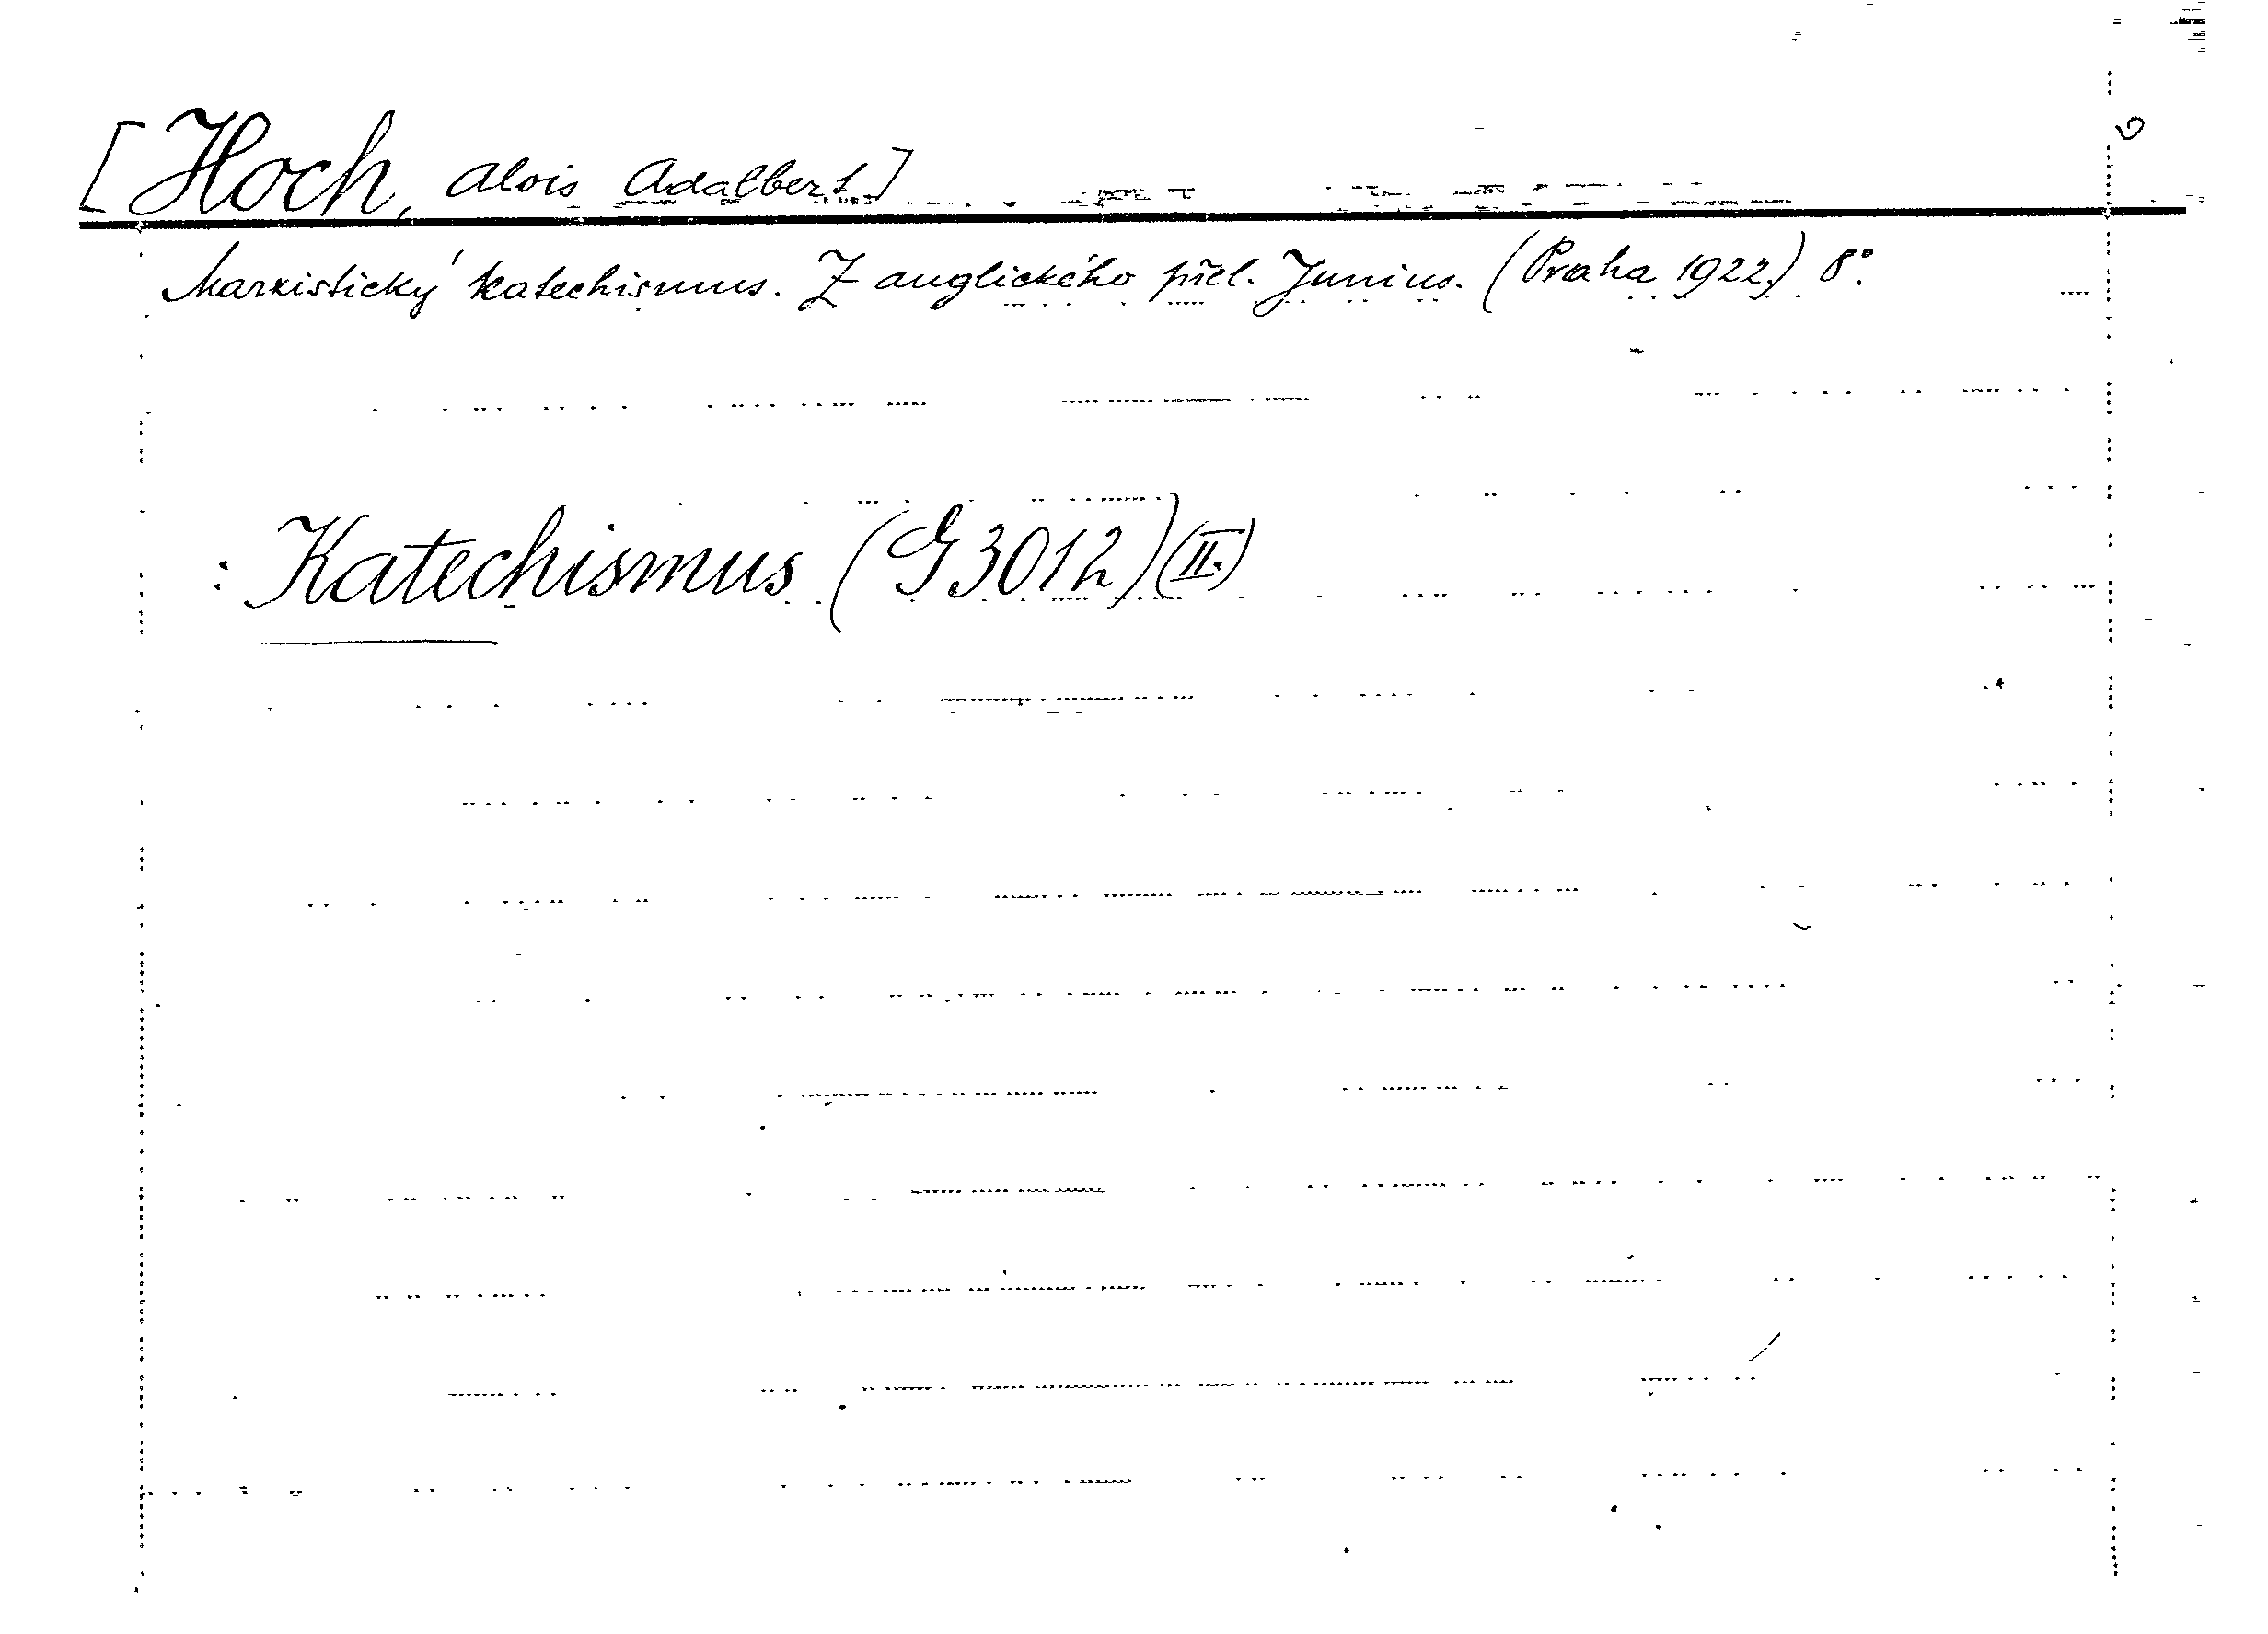 [Hoch, Alois Adalbert]
Marxistický katechismus. Z anglického přel. Junius. (Praha 1922.) 8°.
: Katechismus (G 3012) (II.)